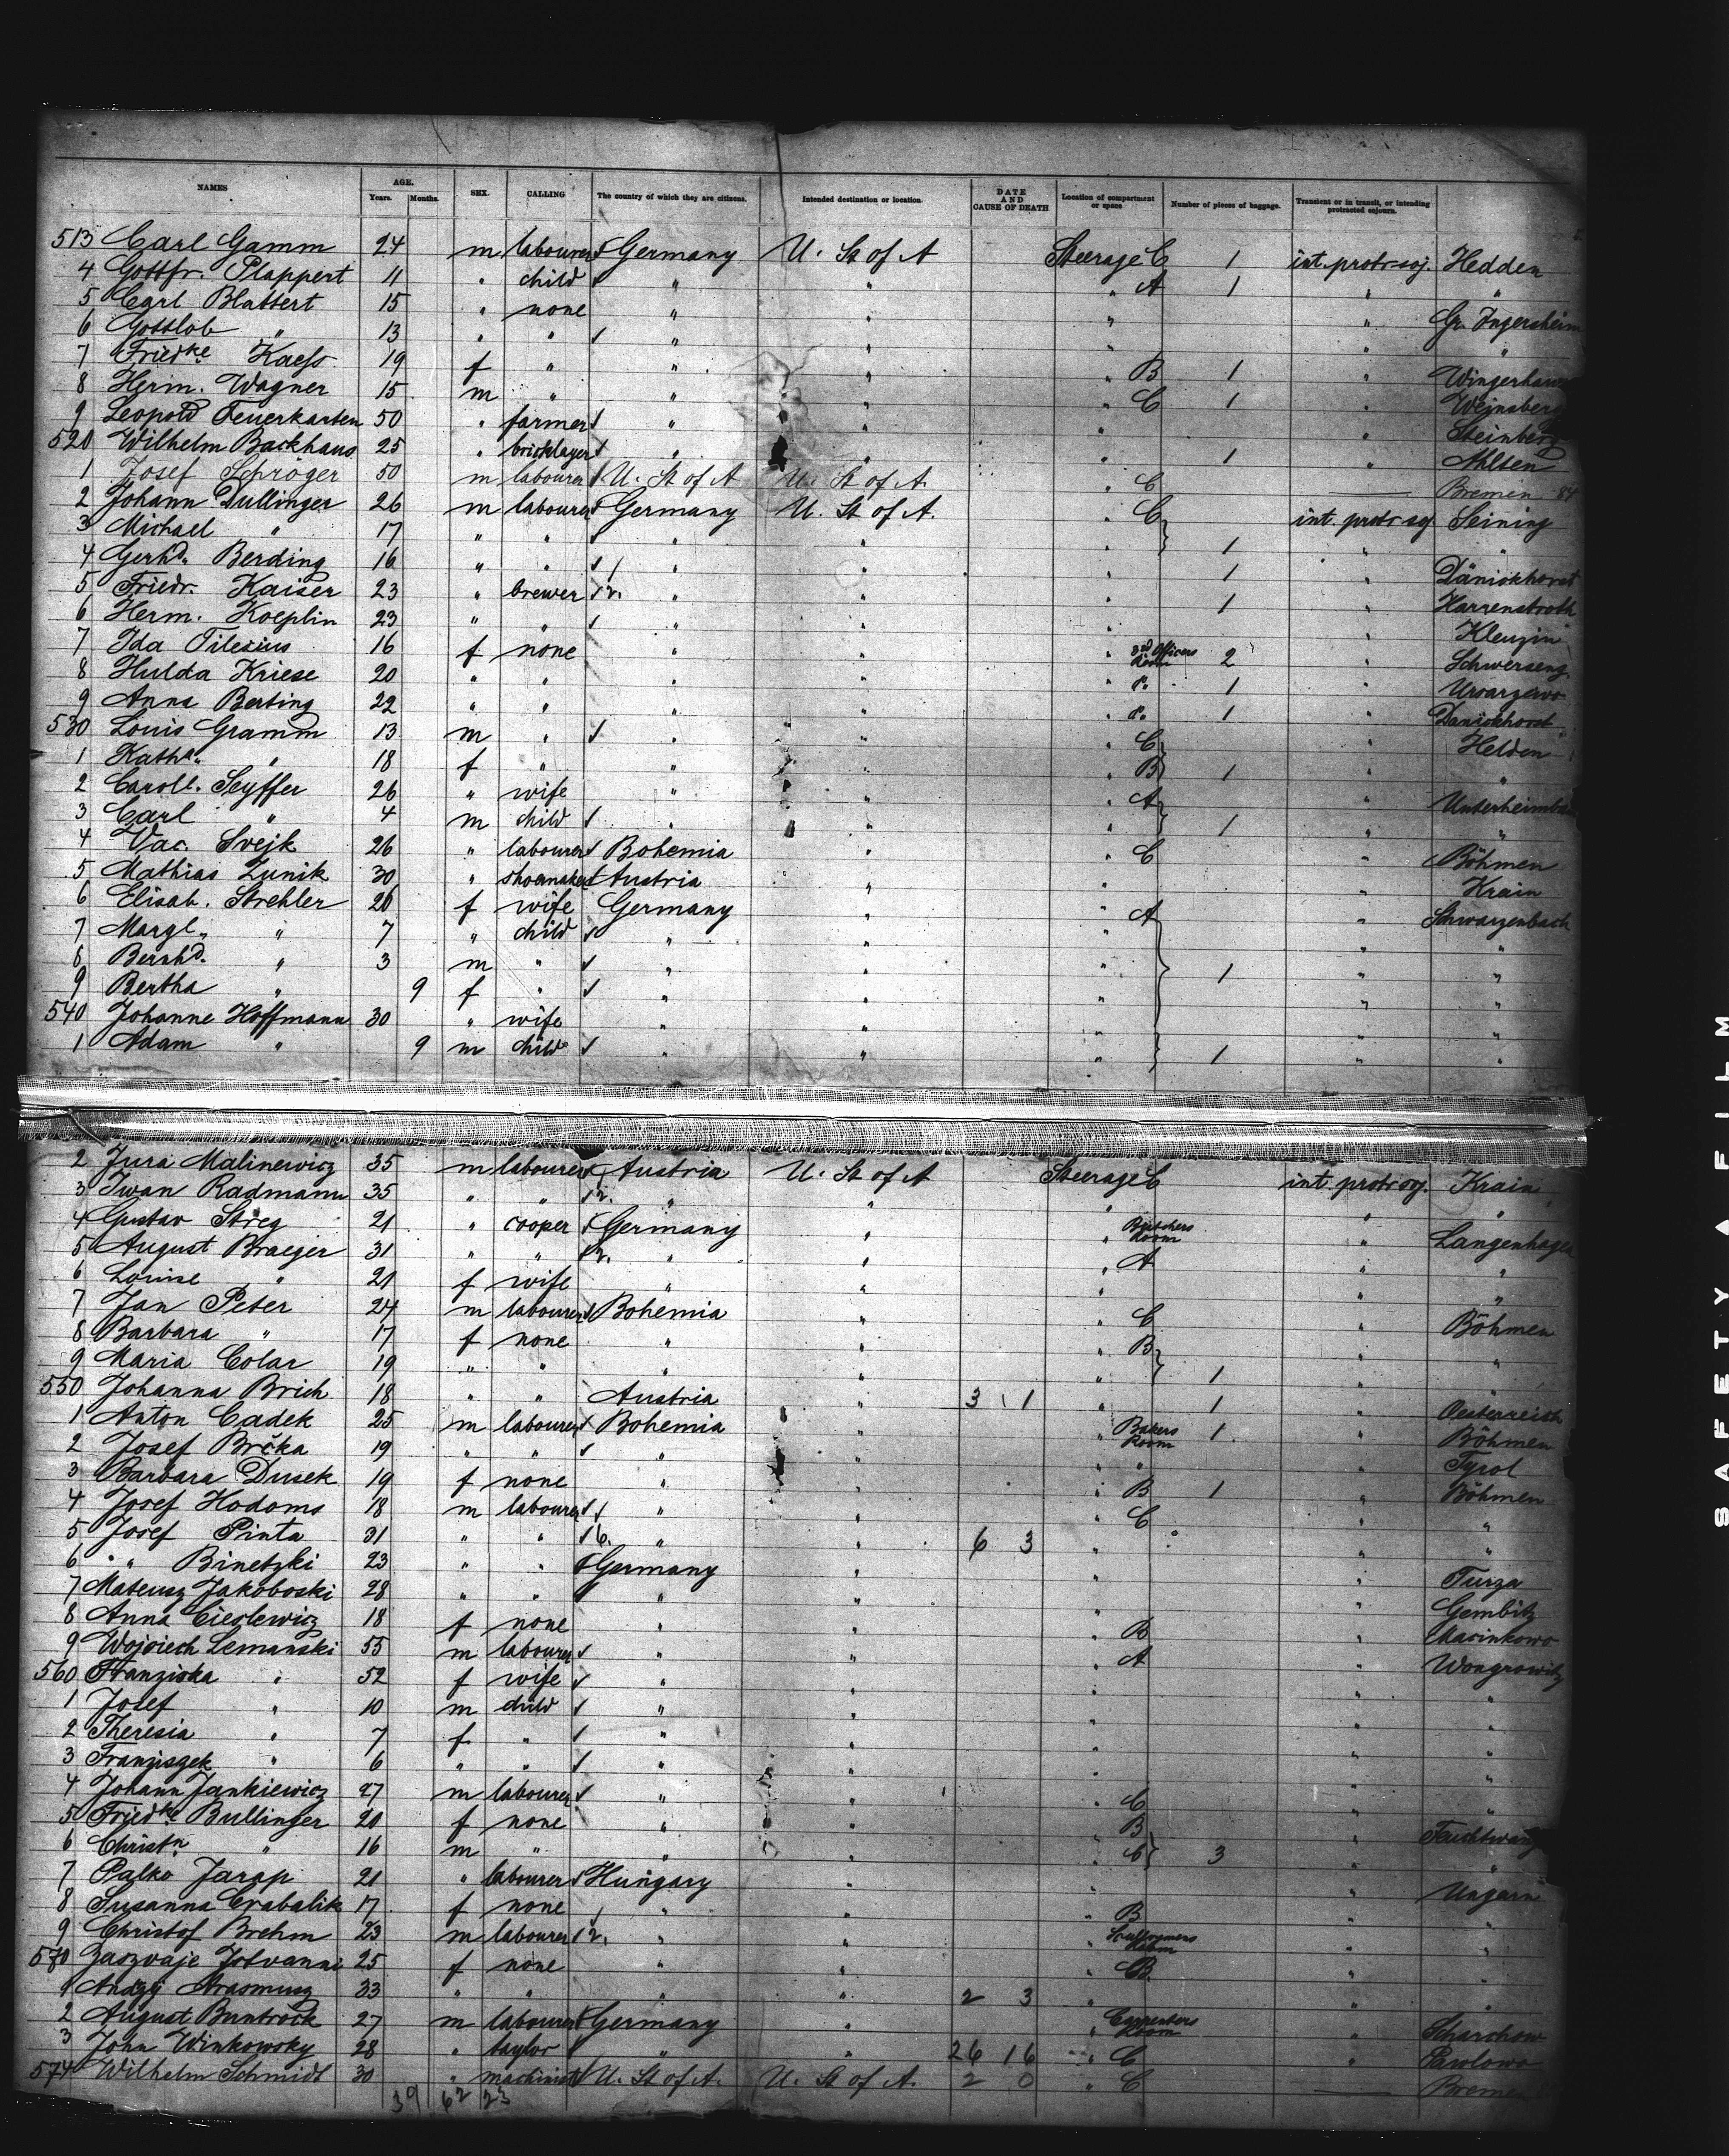 NAMES AGE. Years. Months. SEX. CALLING The country of which they are citizens. Intended destination or location. DATE AND CAUSE OF DEATH Location of compartment or space Number of pieces of baggage. Transient or in transit, or intending protracted sojourn.
513 Carl Gamm 24 m labourer Germany U. St of A Steerage C 1 int. protr. soj. Hedden
4 Gottfr. Plappert 11 " child " " " A 1 " "
5 Carl Blattert 15 " none " " " " Gr. Ingersheim
6 Gottlob " 13 " " " " " " "
7 Friedke Kaess 19 f " " " " B 1 "
8 Herm. Wagner 15 m " " " " C 1 " Weinsberg
9 Leopold Feuerkarten 50 " farmer " " " " Steinberg
520 Wilhelm Backhaus 25 " bricklayer " " " 1 " Ahlten
1 Josef Schroger 50 m labourer U. St of A U. St of A " C — Bremen 84
2 Johann Dullinger 26 m labourer Germany U. St of A. " C int. protr soj Seining
3 Michael " 17 " " " " " 1 " "
4 Gerhd. Berding 16 " " " " " 1 " Däniskhorst
5 Friedr. Kaiser 23 " brewer 2. " " " 1 " Harrenstroth
6 Herm. Koeplin 23 " " " " " " Klenzin
7 Ida Tilesius 16 f none " " " 3rd Officers Room 2 " Schwersenz
8 Hulda Kriese 20 " " " " " P. 1 "
9 Anna Berting 22 " " " " " P. 1 " Daniskhorst
530 Louis Gramm 13 m " " " " C " Helden
1 Katha. " 18 f " " " " B 1 " "
2 Caroll. Seyffer 26 " wife " " " A "
3 Carl " 4 m child " " " 1 " "
4 Vac. Svejk 26 " labourer Bohemia " " C " Böhmen
5 Mathias Zunik 30 " shoemaker Austria " " " Krain
6 Elisab. Strehler 26 f wife Germany " " A " Schwarzenbach
7 Margl. " 7 " child " " " " "
8 Bernhd. " 3 m " " " " 1 " "
9 Bertha " 9 f " " " " " "
540 Johanne Hoffmann 30 " wife " " " " "
1 Adam " 9 m child " " " 1 " "
2 Jura Malinewicz 35 m labourer Austria U. St of A Steerage C int. protr soj. Krain
3 Iwan Radmann 35 " " 2. " " " " "
4 Gustav Streg 21 " cooper Germany " " Butchers Room " Langenhagen
5 August Braeger 31 " " 2. " " " A " "
6 Louise " 21 f wife " " " " "
7 Jan Peter 24 m labourer Bohemia " " C " Böhmen
8 Barbara " 17 f none " " " B " "
9 Maria Colar 19 " " " " " 1 " "
550 Johanna Brich 18 " " Austria " 3 1 " 1 " Oesterreich
1 Anton Cadek 25 m labourer Bohemia " " Bakers Room 1 " Böhmen
2 Josef Brčka 19 " " " " " " " Tyrol
3 Barbara Dusek 19 f none " " " B 1 " Böhmen
4 Josef Hodoms 18 m labourer " " " C " "
5 Josef Pinta 31 " " 6. " " 6 3 " " "
6 " Binetzki 23 " " Germany " " " Turza
7 Mateusz Jakoboski 28 " " " " " " Gembitz
8 Anna Cieslewicz 18 f none " " " B " Marinkowo
9 Wojciech Lemanski 55 m labourer " " " A " Wongrowitz
560 Franziska " 52 f wife " " " " "
1 Josef " 10 m child " " " " "
2 Theresia " 7 f " " " " " "
3 Franziszek " 6 " " " " " " "
4 Johann Jankiewicz 27 m labourer " " " C " "
5 Friedke Bullinger 20 f none " " " B " Feuchtwang
6 Christn " 16 m " " " " C 3 " "
7 Palko Jarap 21 " labourer Hungary " " " Ungarn
8 Susanna Crabalik 17 f none " " " B " "
9 Christof Brehm 23 m labourer 2. " " " Room " "
570 25 f none " " " B. " "
1 33 " " " " 2 3 " " "
2 August Buntrock 27 m labourer Germany " " Carpenters Room " Scharchow
3 John Winkowsky 28 " taylor " " 26 16 " C " Pawlowo
574 Wilhelm Schmidt 30 " machinist U. St of A. U. St of A. 2 0 " C — Bremen
39 62 23
SAFETY A FILM